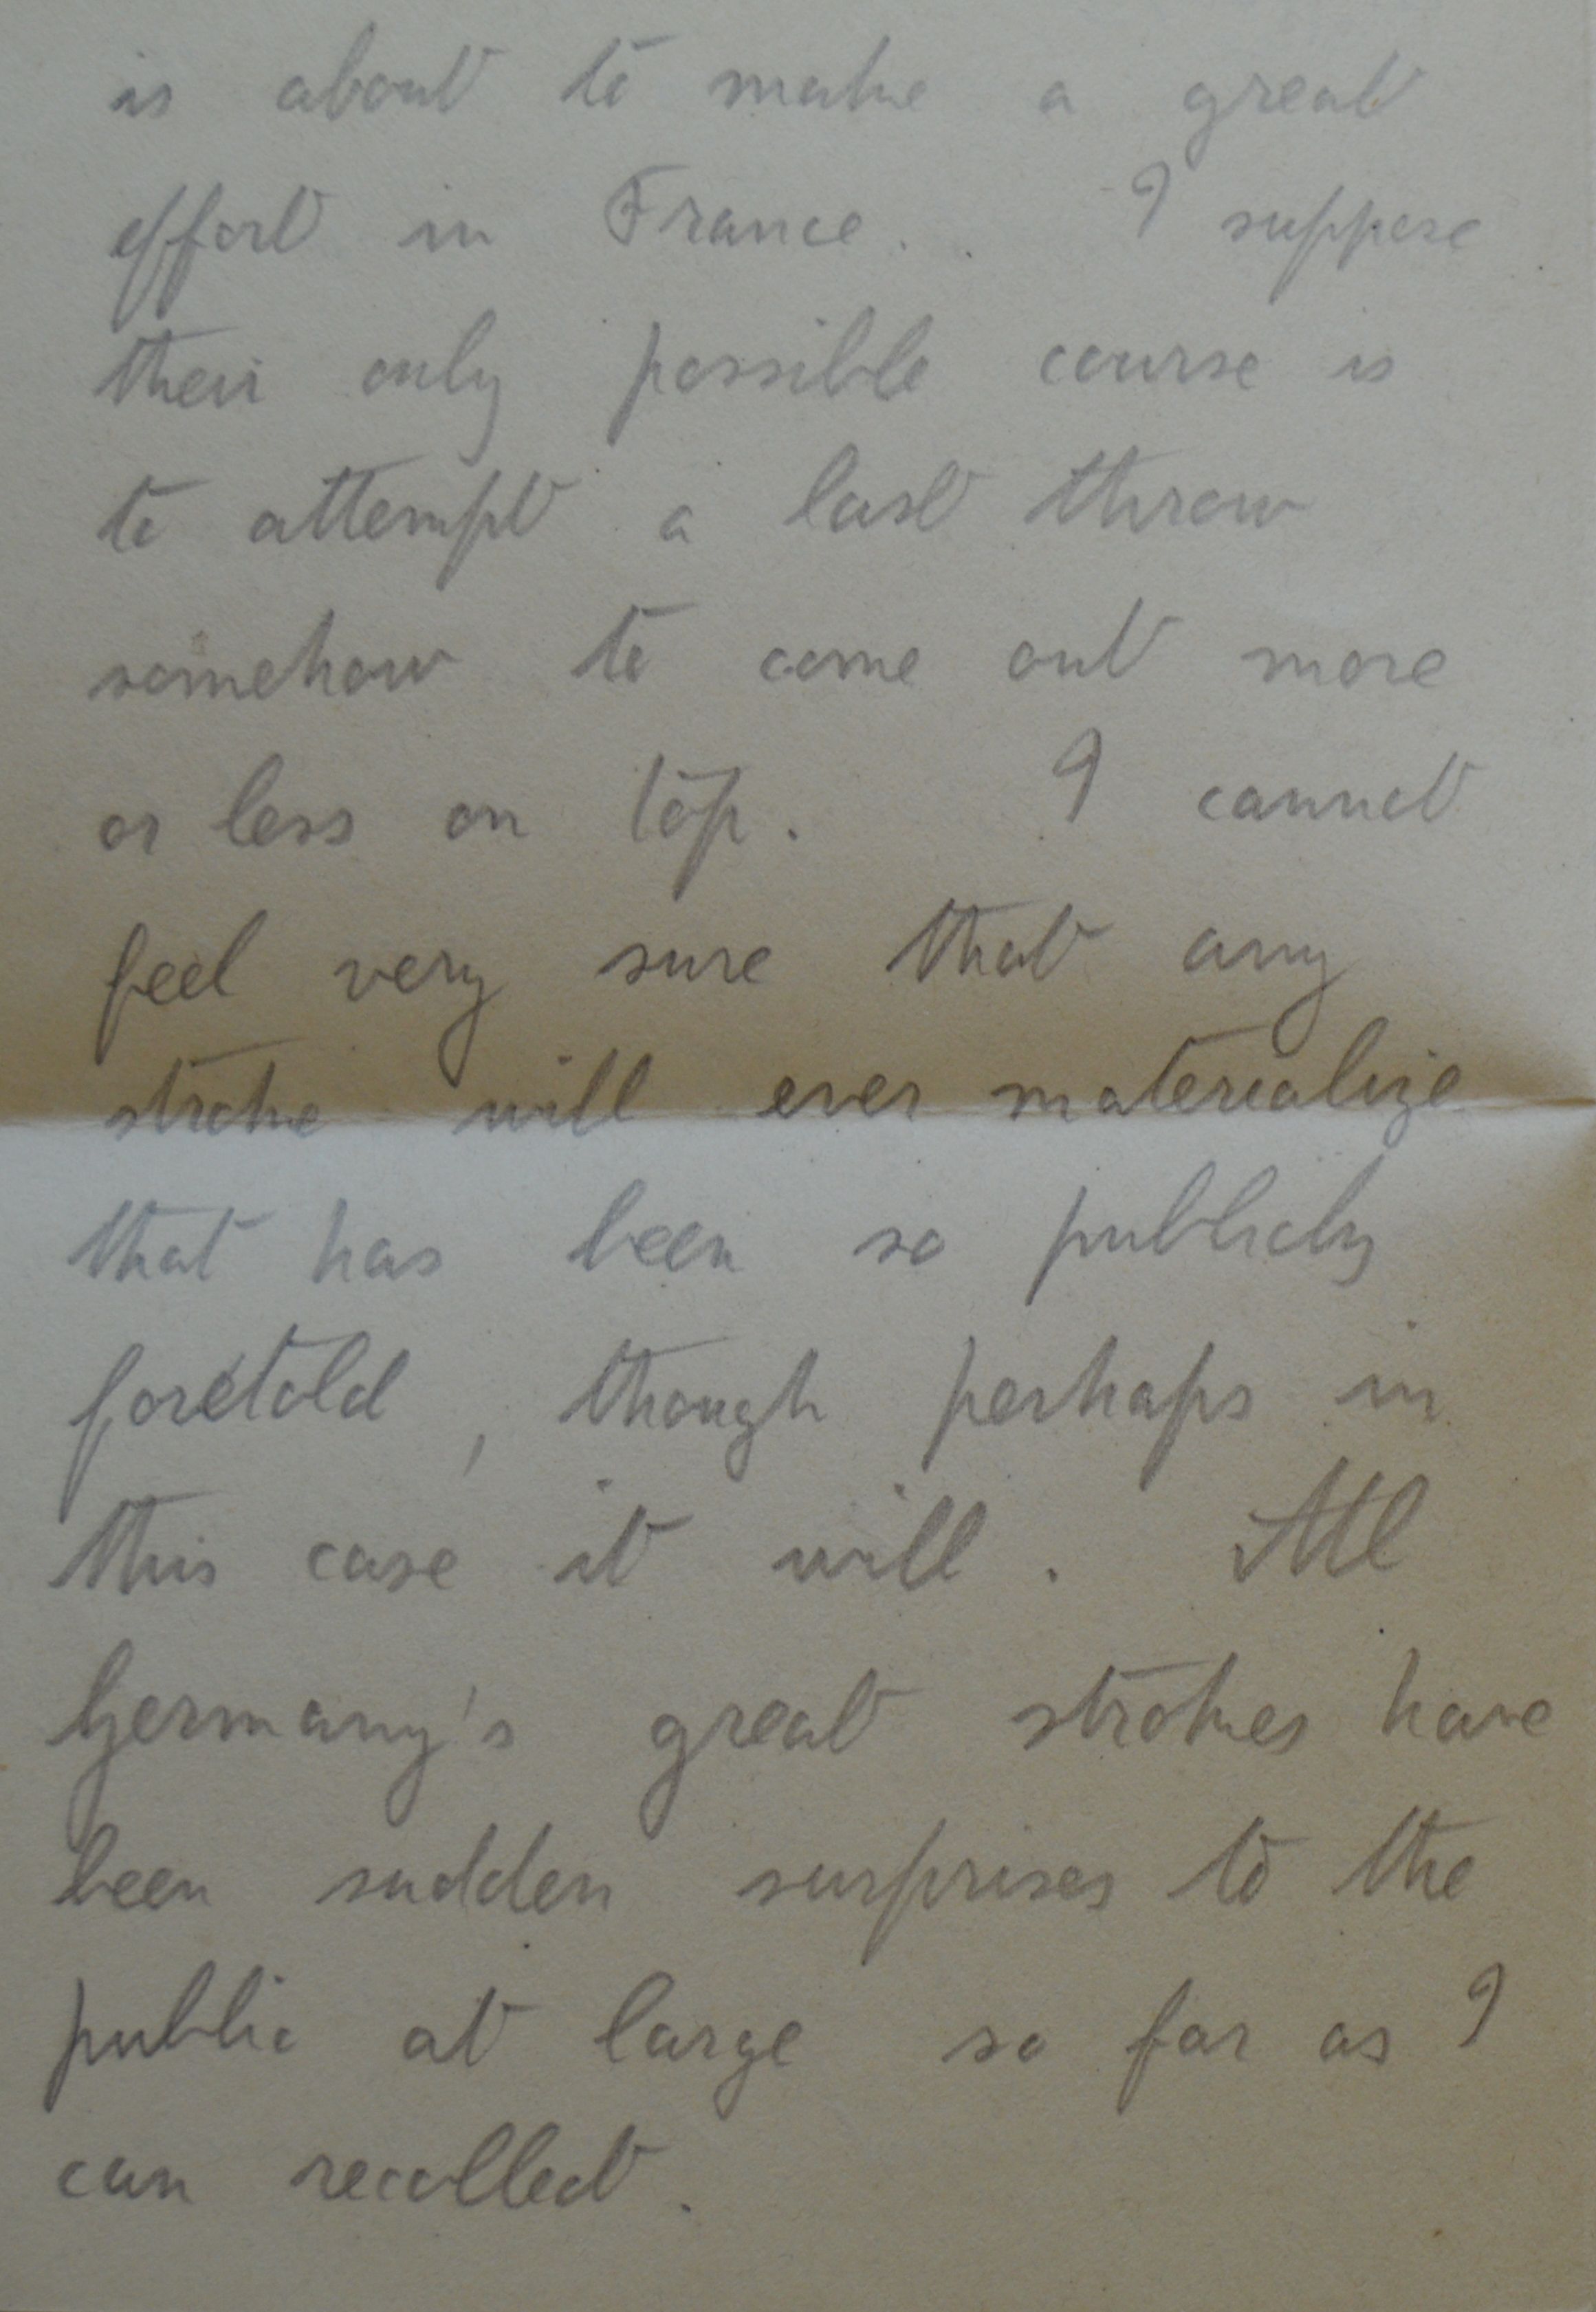 is about to make a great
effort in France. I suppose
their only possible course is
to attempt a last throw
somehow to come out more
or less on top. I cannot
feel very sure that any
stroke will ever materialize
that has been so publicly
foretold, though perhaps in
this case it will. All
Germany's great strokes have
been sudden surprises to the
public at large so far as I
can recollect.